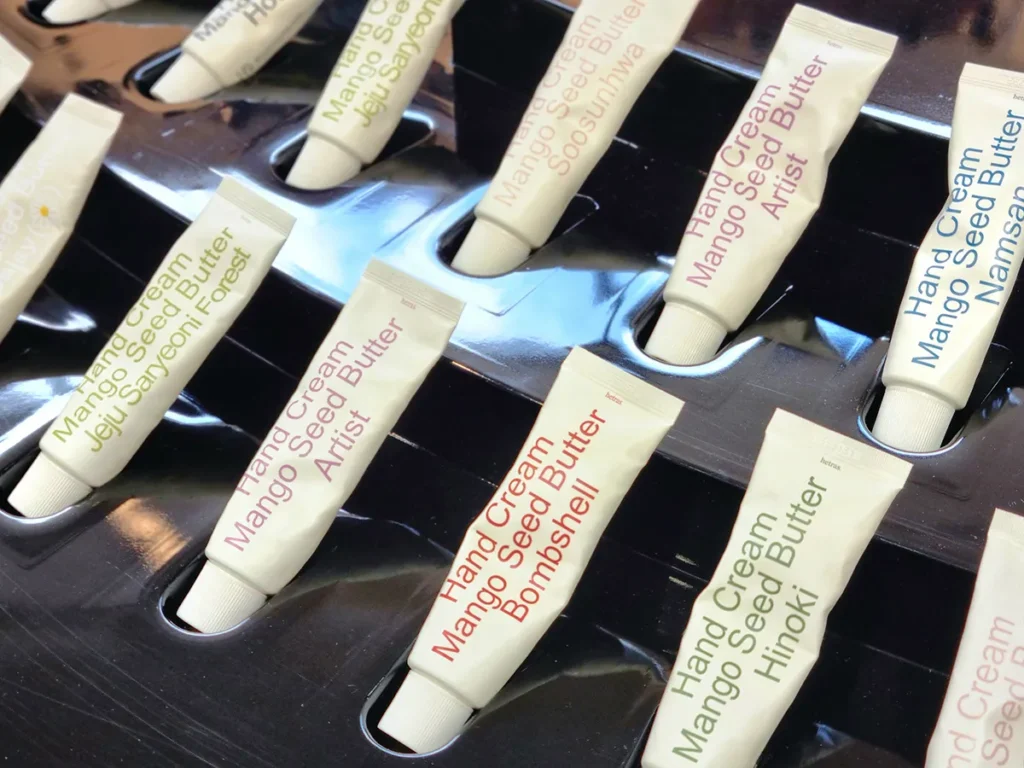 Hand Cream
Mango Seed Butter
Jeju Saryeoni
Hand Cream
Mango Seed Butter
Soosunhwa
Hand Cream
Mango Seed Butter
Artist
Hand Cream
Mango Seed Butter
Namsan
Hand Cream
Mango Seed Butter
Jeju Saryeoni Forest
hetras
Hand Cream
Mango Seed Butter
Artist
hetras
Hand Cream
Mango Seed Butter
Bombshell
hetras
Hand Cream
Mango Seed Butter
Hinoki
Cream
Seed